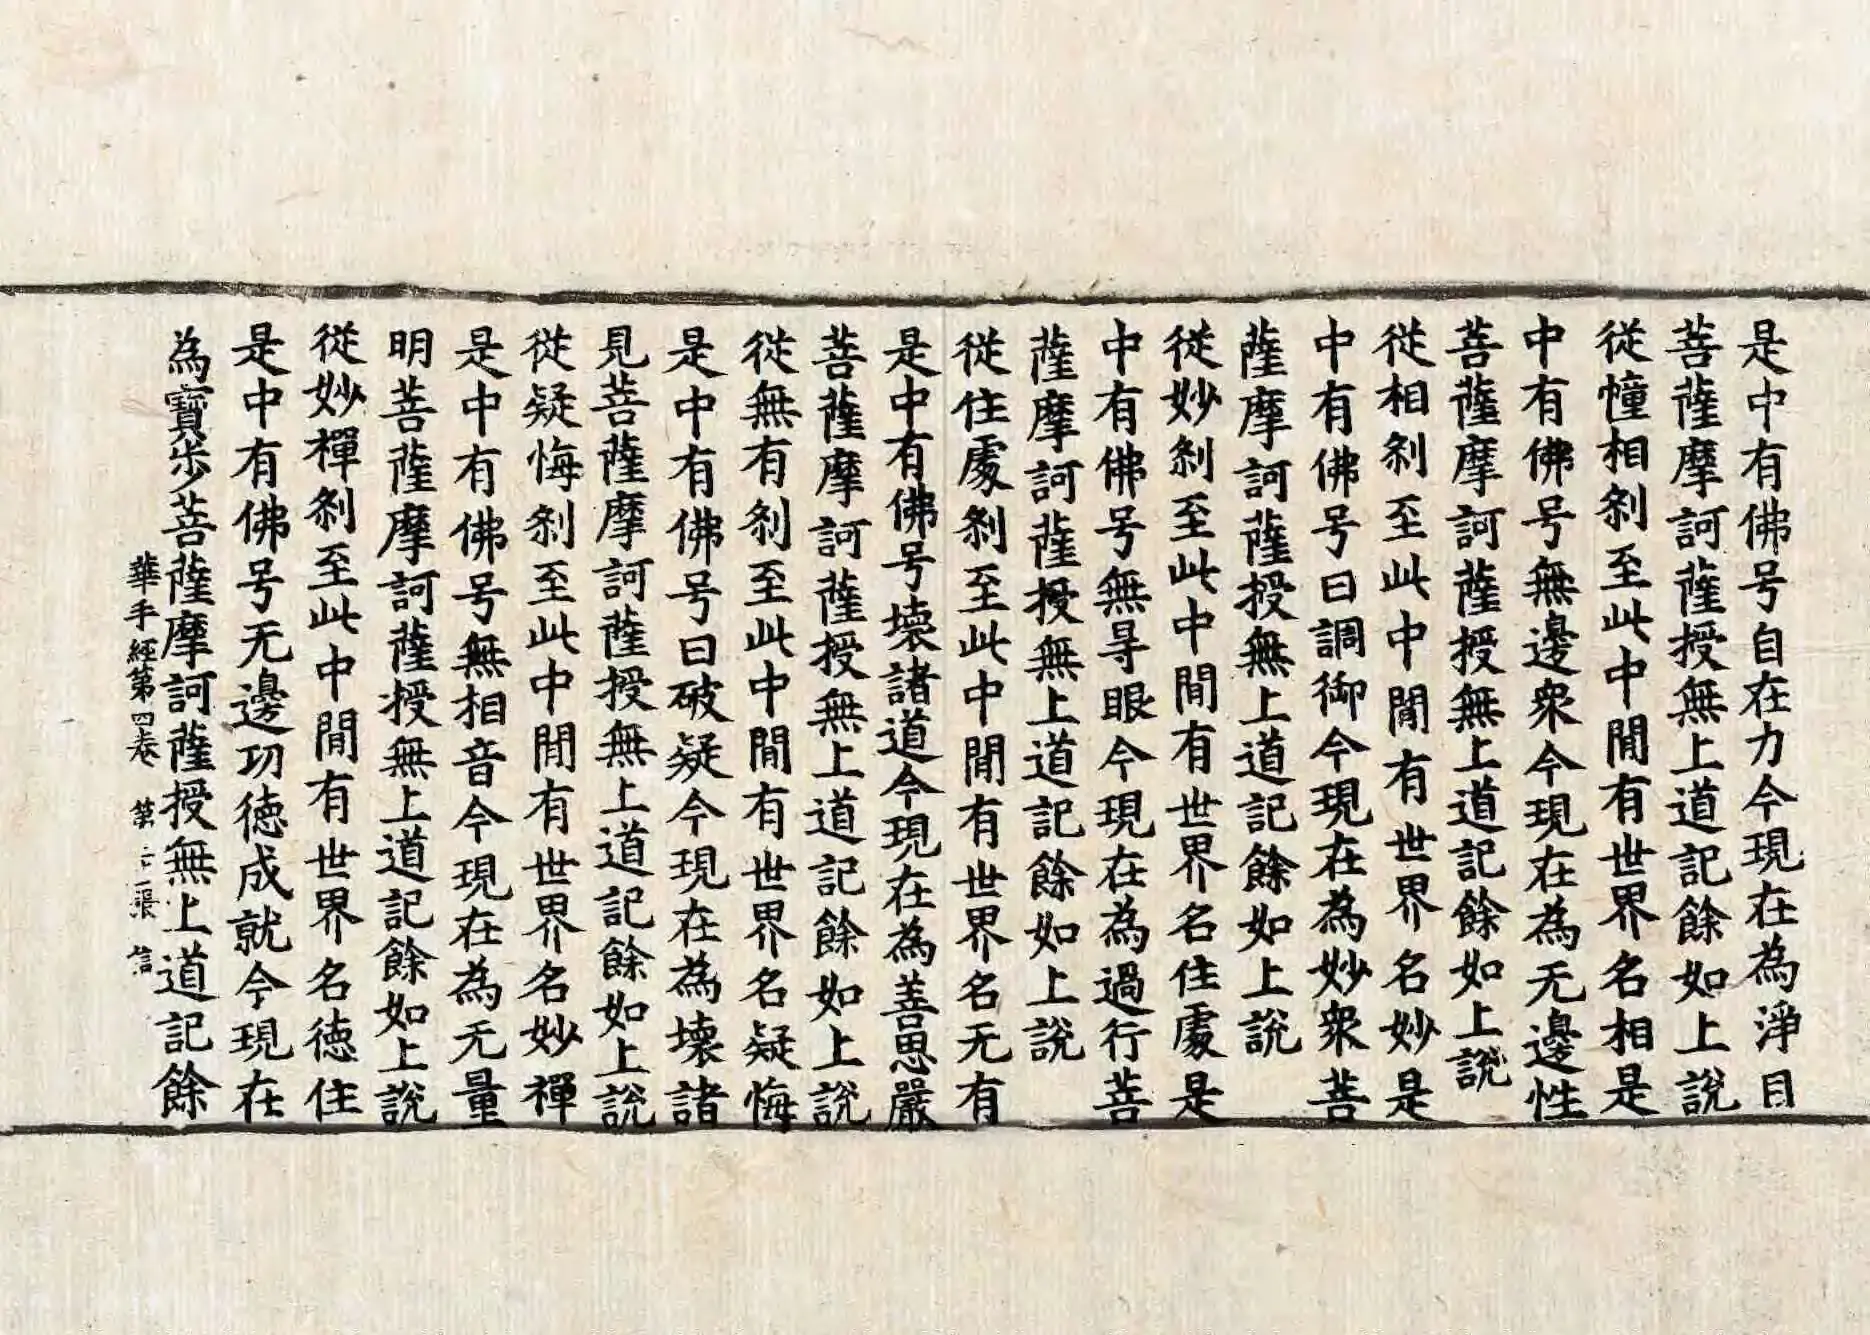 是中有佛号自在力今現在為淨目
菩薩摩訶薩授無上道記餘如上說
從幢相刹至此中閒有世界名相是
中有佛号無邊衆今現在為无邊性
菩薩摩訶薩授無上道記餘如上說
從相刹至此中閒有世界名妙是
中有佛号曰調御今現在為妙衆菩
薩摩訶薩授無上道記餘如上說
從妙刹至此中閒有世界名住處是
中有佛号無㝵眼今現在為過行菩
薩摩訶薩授無上道記餘如上說
從住處刹至此中閒有世界名无有
是中有佛号壞諸道今現在為善思嚴
菩薩摩訶薩授無上道記餘如上說
從無有刹至此中閒有世界名疑悔
是中有佛号曰破疑今現在為壞諸
見菩薩摩訶薩授無上道記餘如上說
從疑悔刹至此中閒有世界名妙禪
是中有佛号無相音今現在為无量
明菩薩摩訶薩授無上道記餘如上說
從妙禪刹至此中閒有世界名德住
是中有佛号无邊功德成就今現在
為寶步菩薩摩訶薩授無上道記餘
華手經第四卷 第 張 信